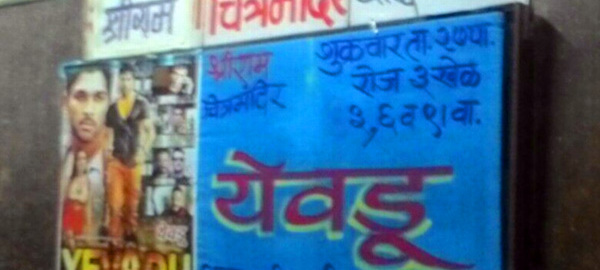 श्रीराम चित्रमंदिर
श्रीराम
चित्रमंदिर
शुक्रवार ता. २७ पा.
रोज ३ खेळ
३, ६ व ९ वा.
येवडू
YEVADU